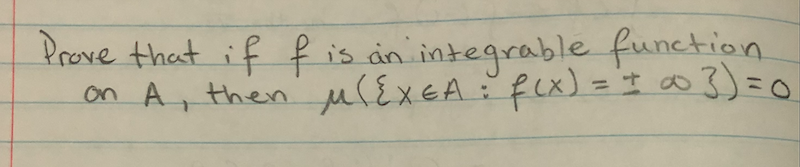 Prove that if f is an integrable function
on A, then μ({x∈A : f(x) = ± ∞}) = 0